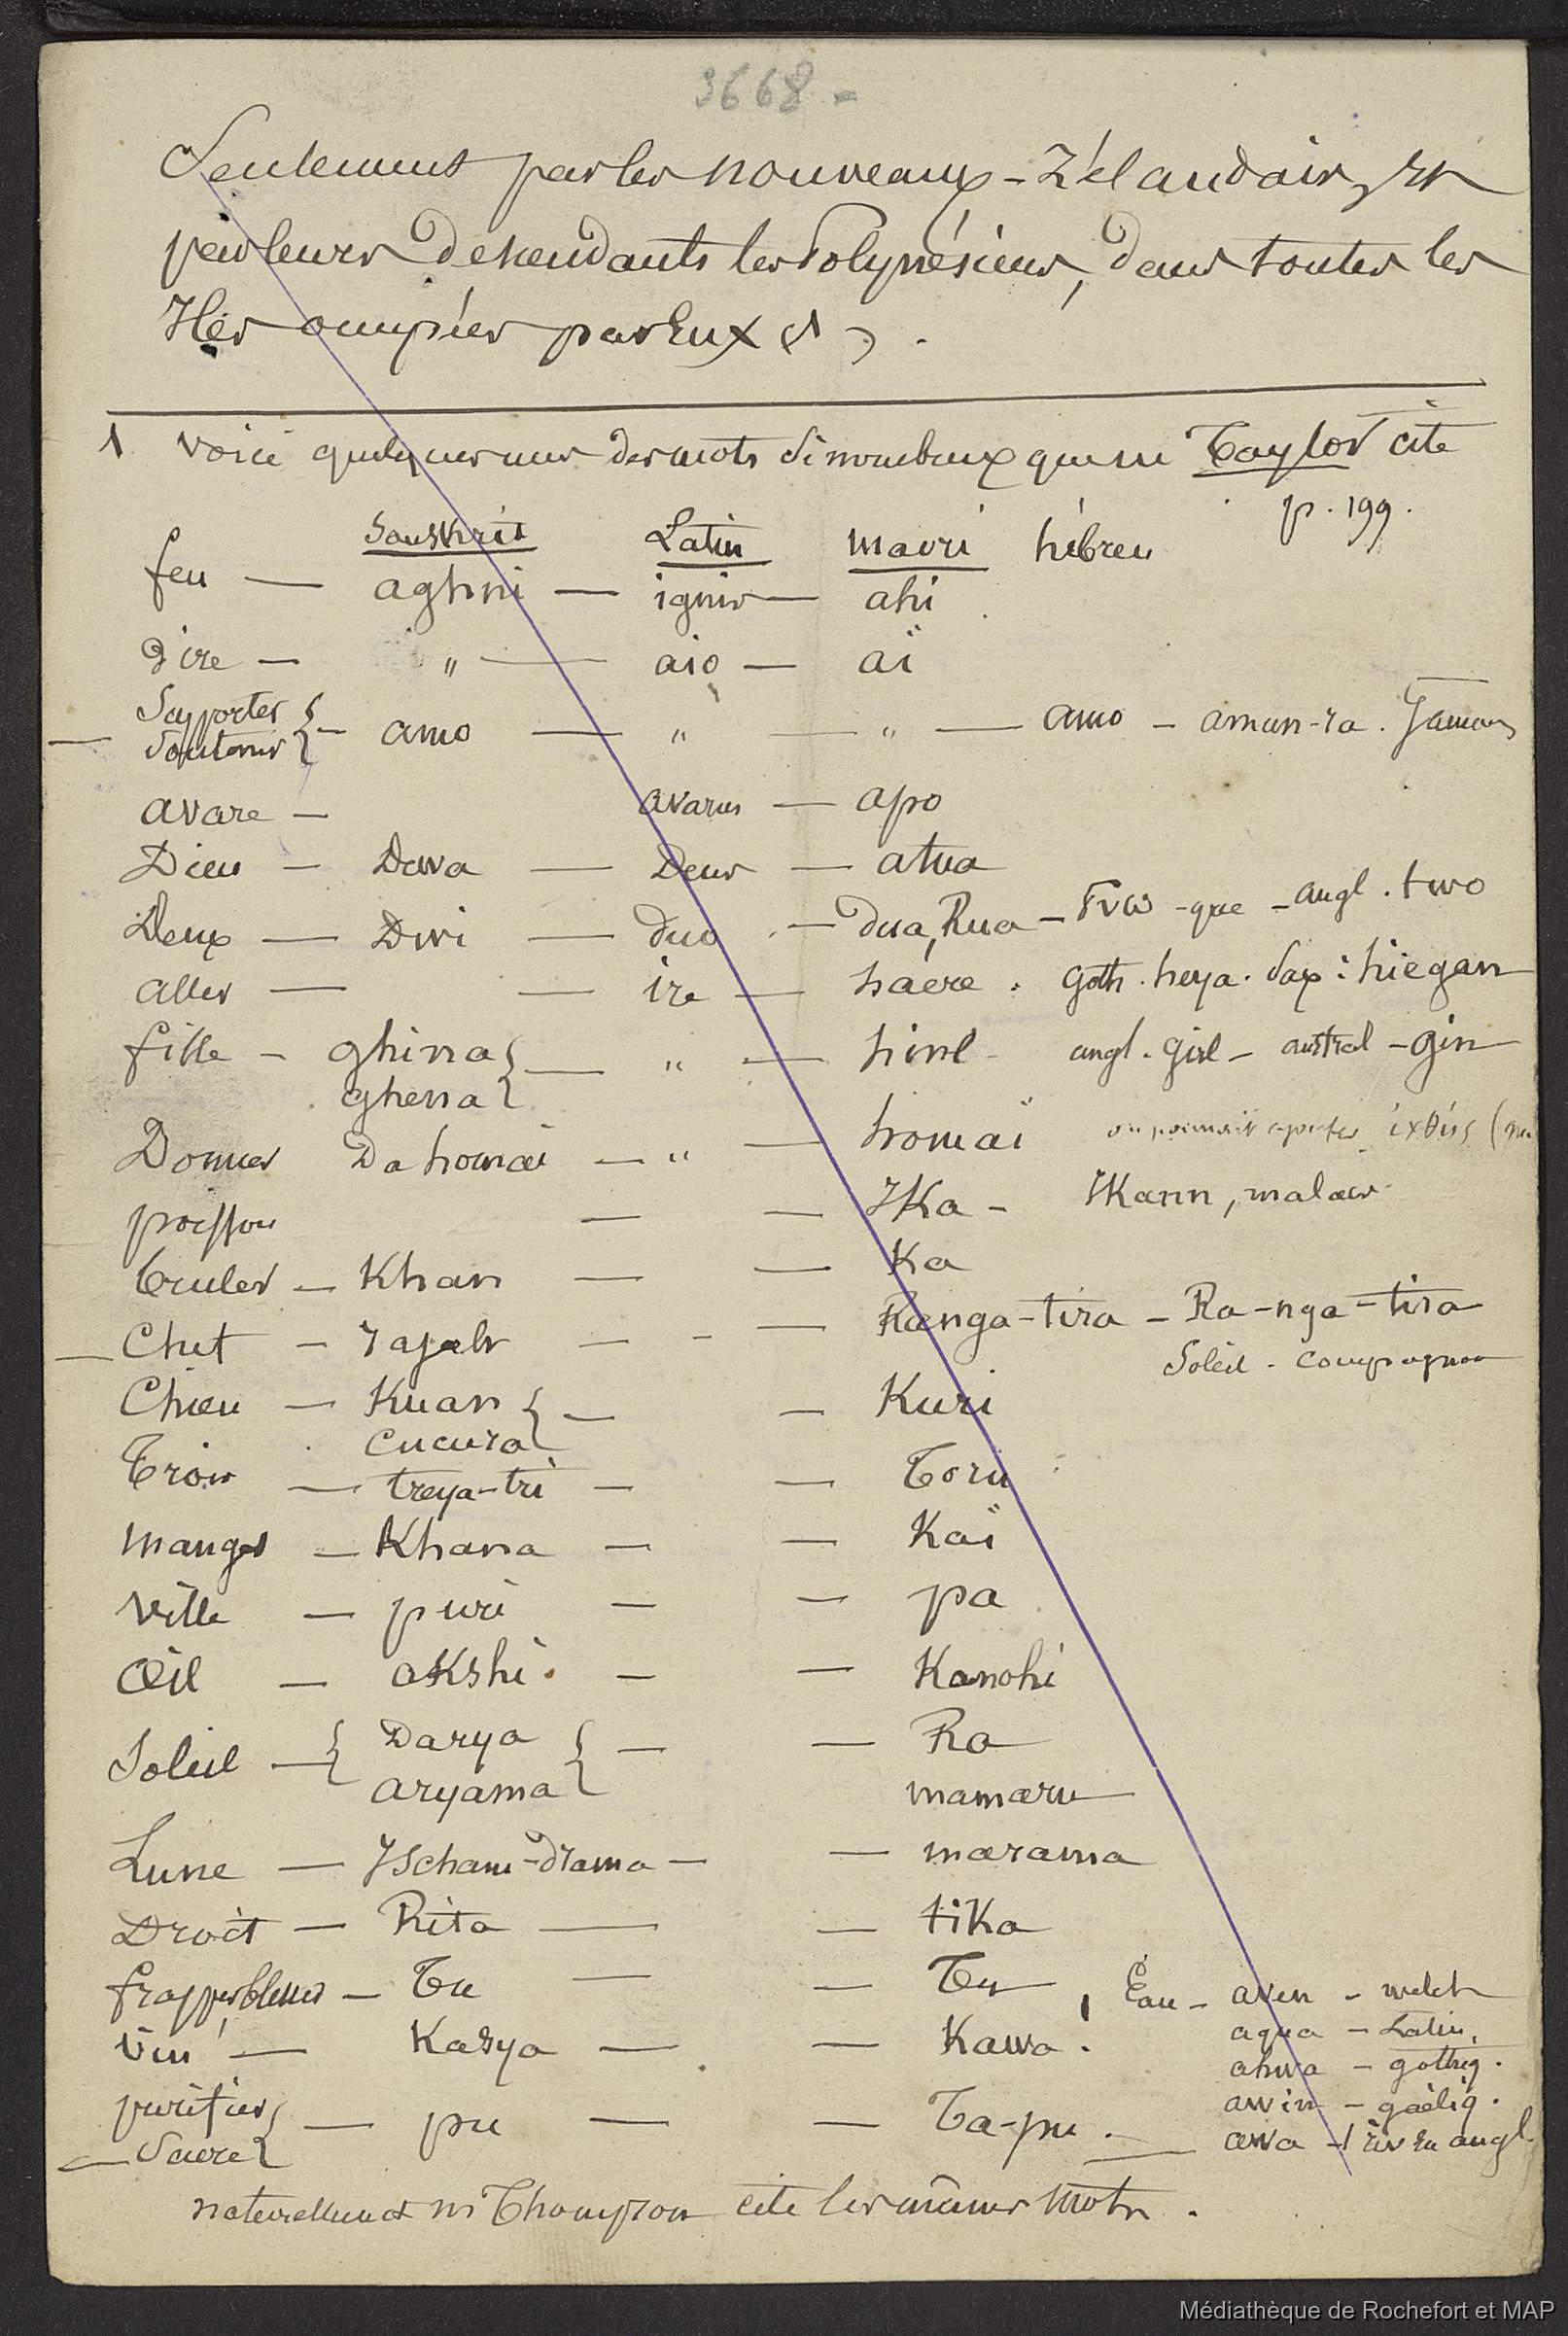 3668 -
Seulement par les nouveaux-Zélandais, et
par leurs descendants les Polynésiens, dans toutes les
Iles occupées par Eux (1).
1 voici quelques uns des mots si nombreux que m Taylor cite
p. 199.
Sanskrit Latin maori hébreu
feu — aghni — ignis — ahi
dire — " — aio — aï
Supporter Soutenir } — amo — " — " — amo — amun-ra.
avare — avarus — apo
Dieu — Dava — Deus — atua
Deux — Dwi — duo — dua, Rua — grec — angl. two
aller — — ire — haere. Goth. heya. Sax: hiegan
fille — ghina ghena } — " — hine — angl. girl — austral — gin
Donner Da homai — " — homaï on pourrait ajouter ιχθύς
poisson — — Ika — Ikann, malais
bruler — Khan — — Ka
Chef — rajah — - — Ranga-tira — Ra-nga-tira
Soleil - compagnon
Chien — Kuan cucura } — — Kuri
Trois — treya-tri — — Toru
manger — Khana — — Kaï
Ville — puri — — pa
Œil — akshi. — — Kanohi
Soleil — { Darya aryama } — — Ra mamaru
Lune — Ischam-drama — — marama
Droit — Rita — — tika
frapper, blesser — Tu — — Tu, Eau — aven — welch
vin — Kasya — — Kawa. agua — Latin,
ahwa — gothiq.
purifier Sacré } — pu — — Ta-pu. awin — gaëliq.
awa — river en angl.
naturellement m Thompson cite les mêmes mots.
Médiathèque de Rochefort et MAP